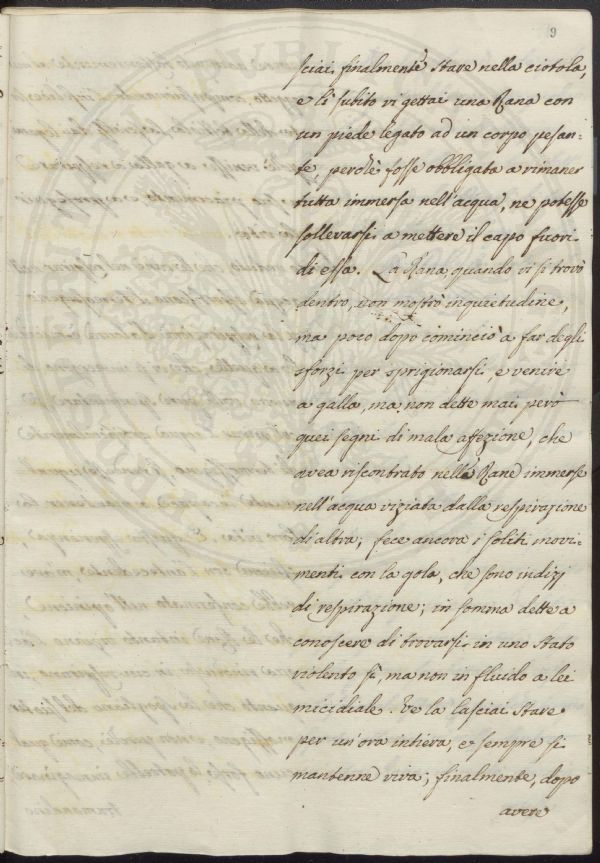 9
sciai finalmente stare nella ciotola,
e lì subito vi gettai una Rana con
un piede legato ad un corpo pesan-
te, perchè fosse obbligata a rimaner
tutta immersa nell'acqua, ne potesse
sollevarsi a mettere il capo fuori
di essa. La Rana quando vi si trovò
dentro, non mostrò inquietudine,
ma poco dopo cominciò a far degli
sforzi per sprigionarsi, e venire
a galla, ma non dette mai però
quei segni di mala affezione, che
avea riscontrato nelle Rane immerse
nell'acqua viziata dalla respirazione
di altra; fece ancora i soliti movi-
menti con la gola, che sono indizj
di respirazione; in somma dette a
conoscere di trovarsi in uno stato
violento sì, ma non in fluido a lei
micidiale. Ve la lasciai stare
per un'ora intiera, e sempre si
mantenne viva; finalmente, dopo
avere